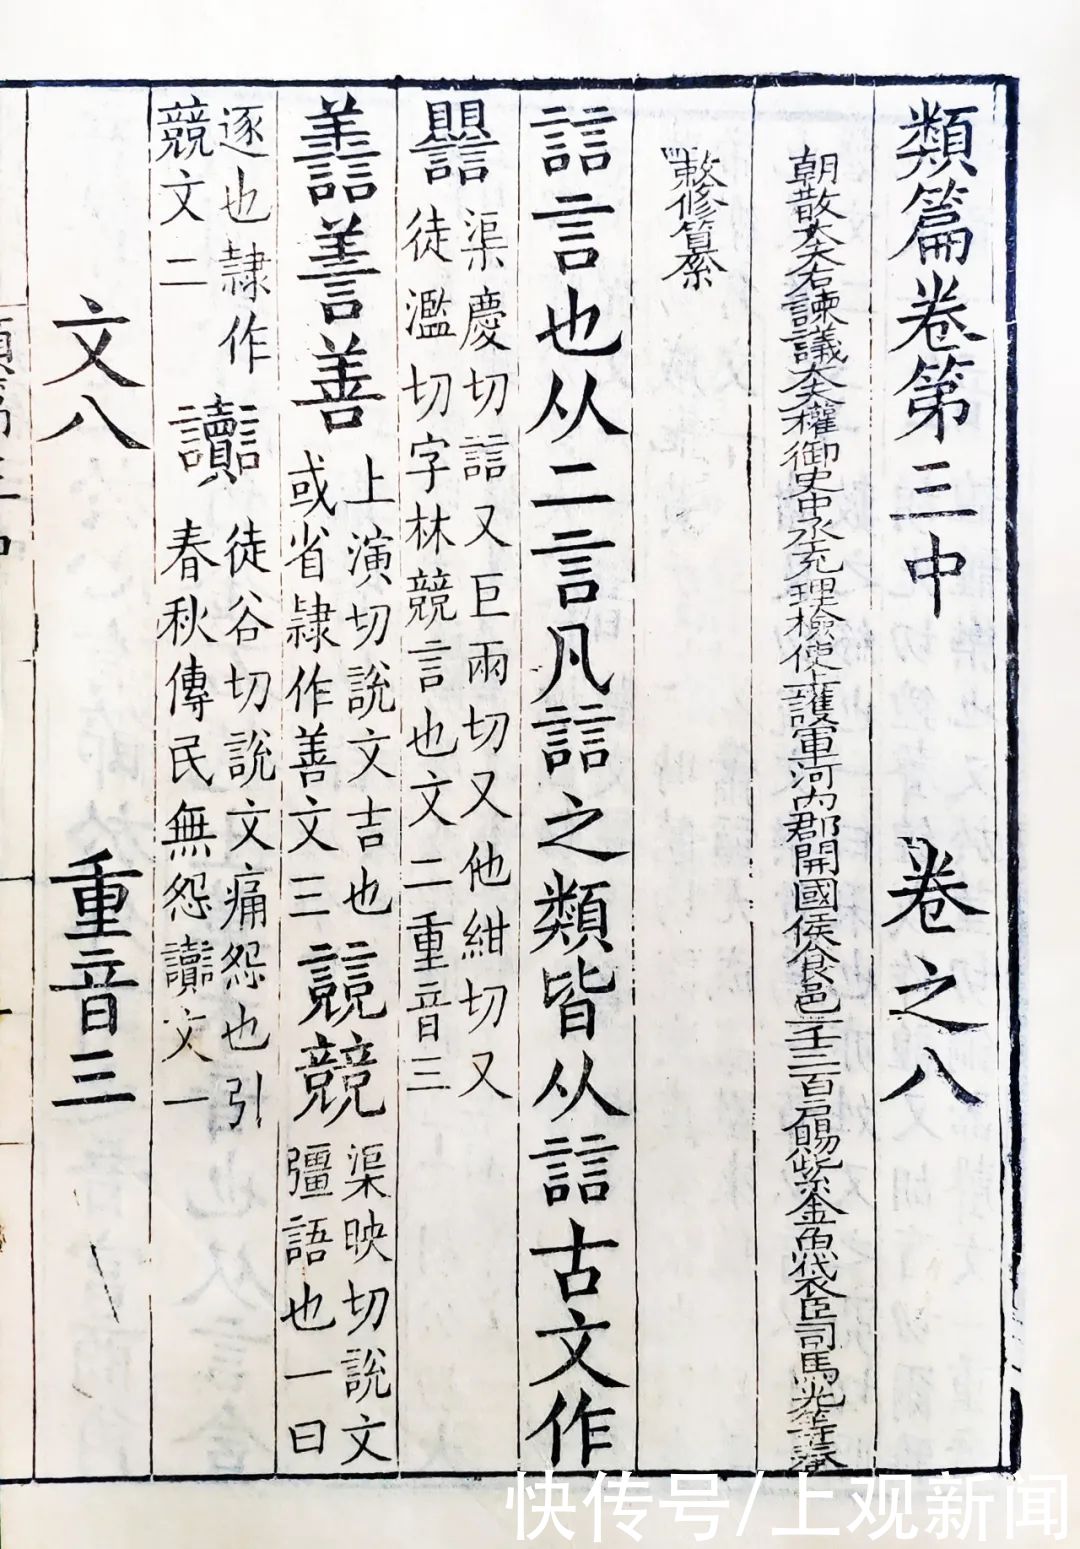 類篇卷第三中 卷之八
朝散大夫右諫議大夫權御史中丞充理檢使上護軍河內郡開國侯食邑一千三百戶賜紫金魚袋臣司馬光等奉
敕修纂
誩言也从二言凡誩之類皆从誩古文作
渠慶切誩又巨兩切又他紺切又
徒濫切字林競言也文二重音三
譱 善
上演切說文吉也
或省隸作善文三
競
渠映切說文
彊語也一曰
逐也隸作
競文二
讟
徒谷切說文痛怨也引
春秋傳民無怨讟文一
文八 重音三
快传号/上观新闻